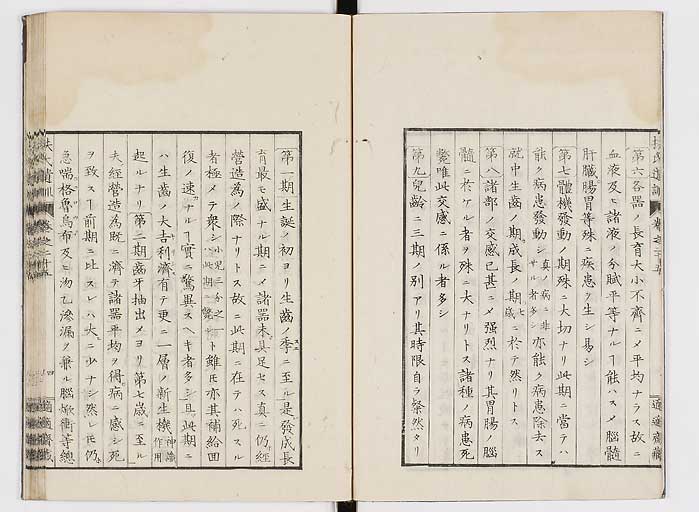 第六各器ノ長育大小不齊ニメ平均ナラス故ニ
血液及ヒ諸液ノ分賦平等ナルヿ能ハスメ腦髓
肝臓腸胃等殊ニ疾患ヲ生シ易シ
第七體機發動ノ期殊ニ大切ナリ此期ニ當テハ
能ク病患發動シ真病ニ非サル者多シ亦能ク病患除去ス
就中生齒ノ期成長ノ期七歲ニ於テ然リトス
第八諸部ノ交感已甚ニメ强烈ナリ其胃腸ノ腦
髓ニ於ケル者ヲ殊ニ大ナリトス諸種ノ病患死
斃唯此交感ニ係ル者多シ
第九兒齡ニ三期ノ別アリ其時限自ラ粲然タリ
第一期生誕ノ初ヨリ生齒ノ季ニ至ル是發成長
育最モ盛ナル期ニメ諸器未具足セス真ニ仍經
營造為ノ際ナリトス故ニ此期ニ在テハ死スル
者極メテ衆シ小兒三分之一ハ此期ニ斃ル ト雖モ亦其補給回
復ノ速ナルヿ實ニ驚異スヘキ者多シ且此期ニ
ハ生齒ノ大吉利濟有テ更ニ一層ノ新生機神識作用
起ルナリ第二期齒牙抽出メヨリ第七歲ニ至ル
夫經營造為既ニ濟テ諸器平均ヲ得病ニ感シ死
ヲ致スヿ前期ニ比スレハ大ニ少ナシ然レモ仍
急喘格魯烏布及ヒ沕乙滲漏ヲ兼ル腦焮衝等總
四
適適齋藏
適適齋藏